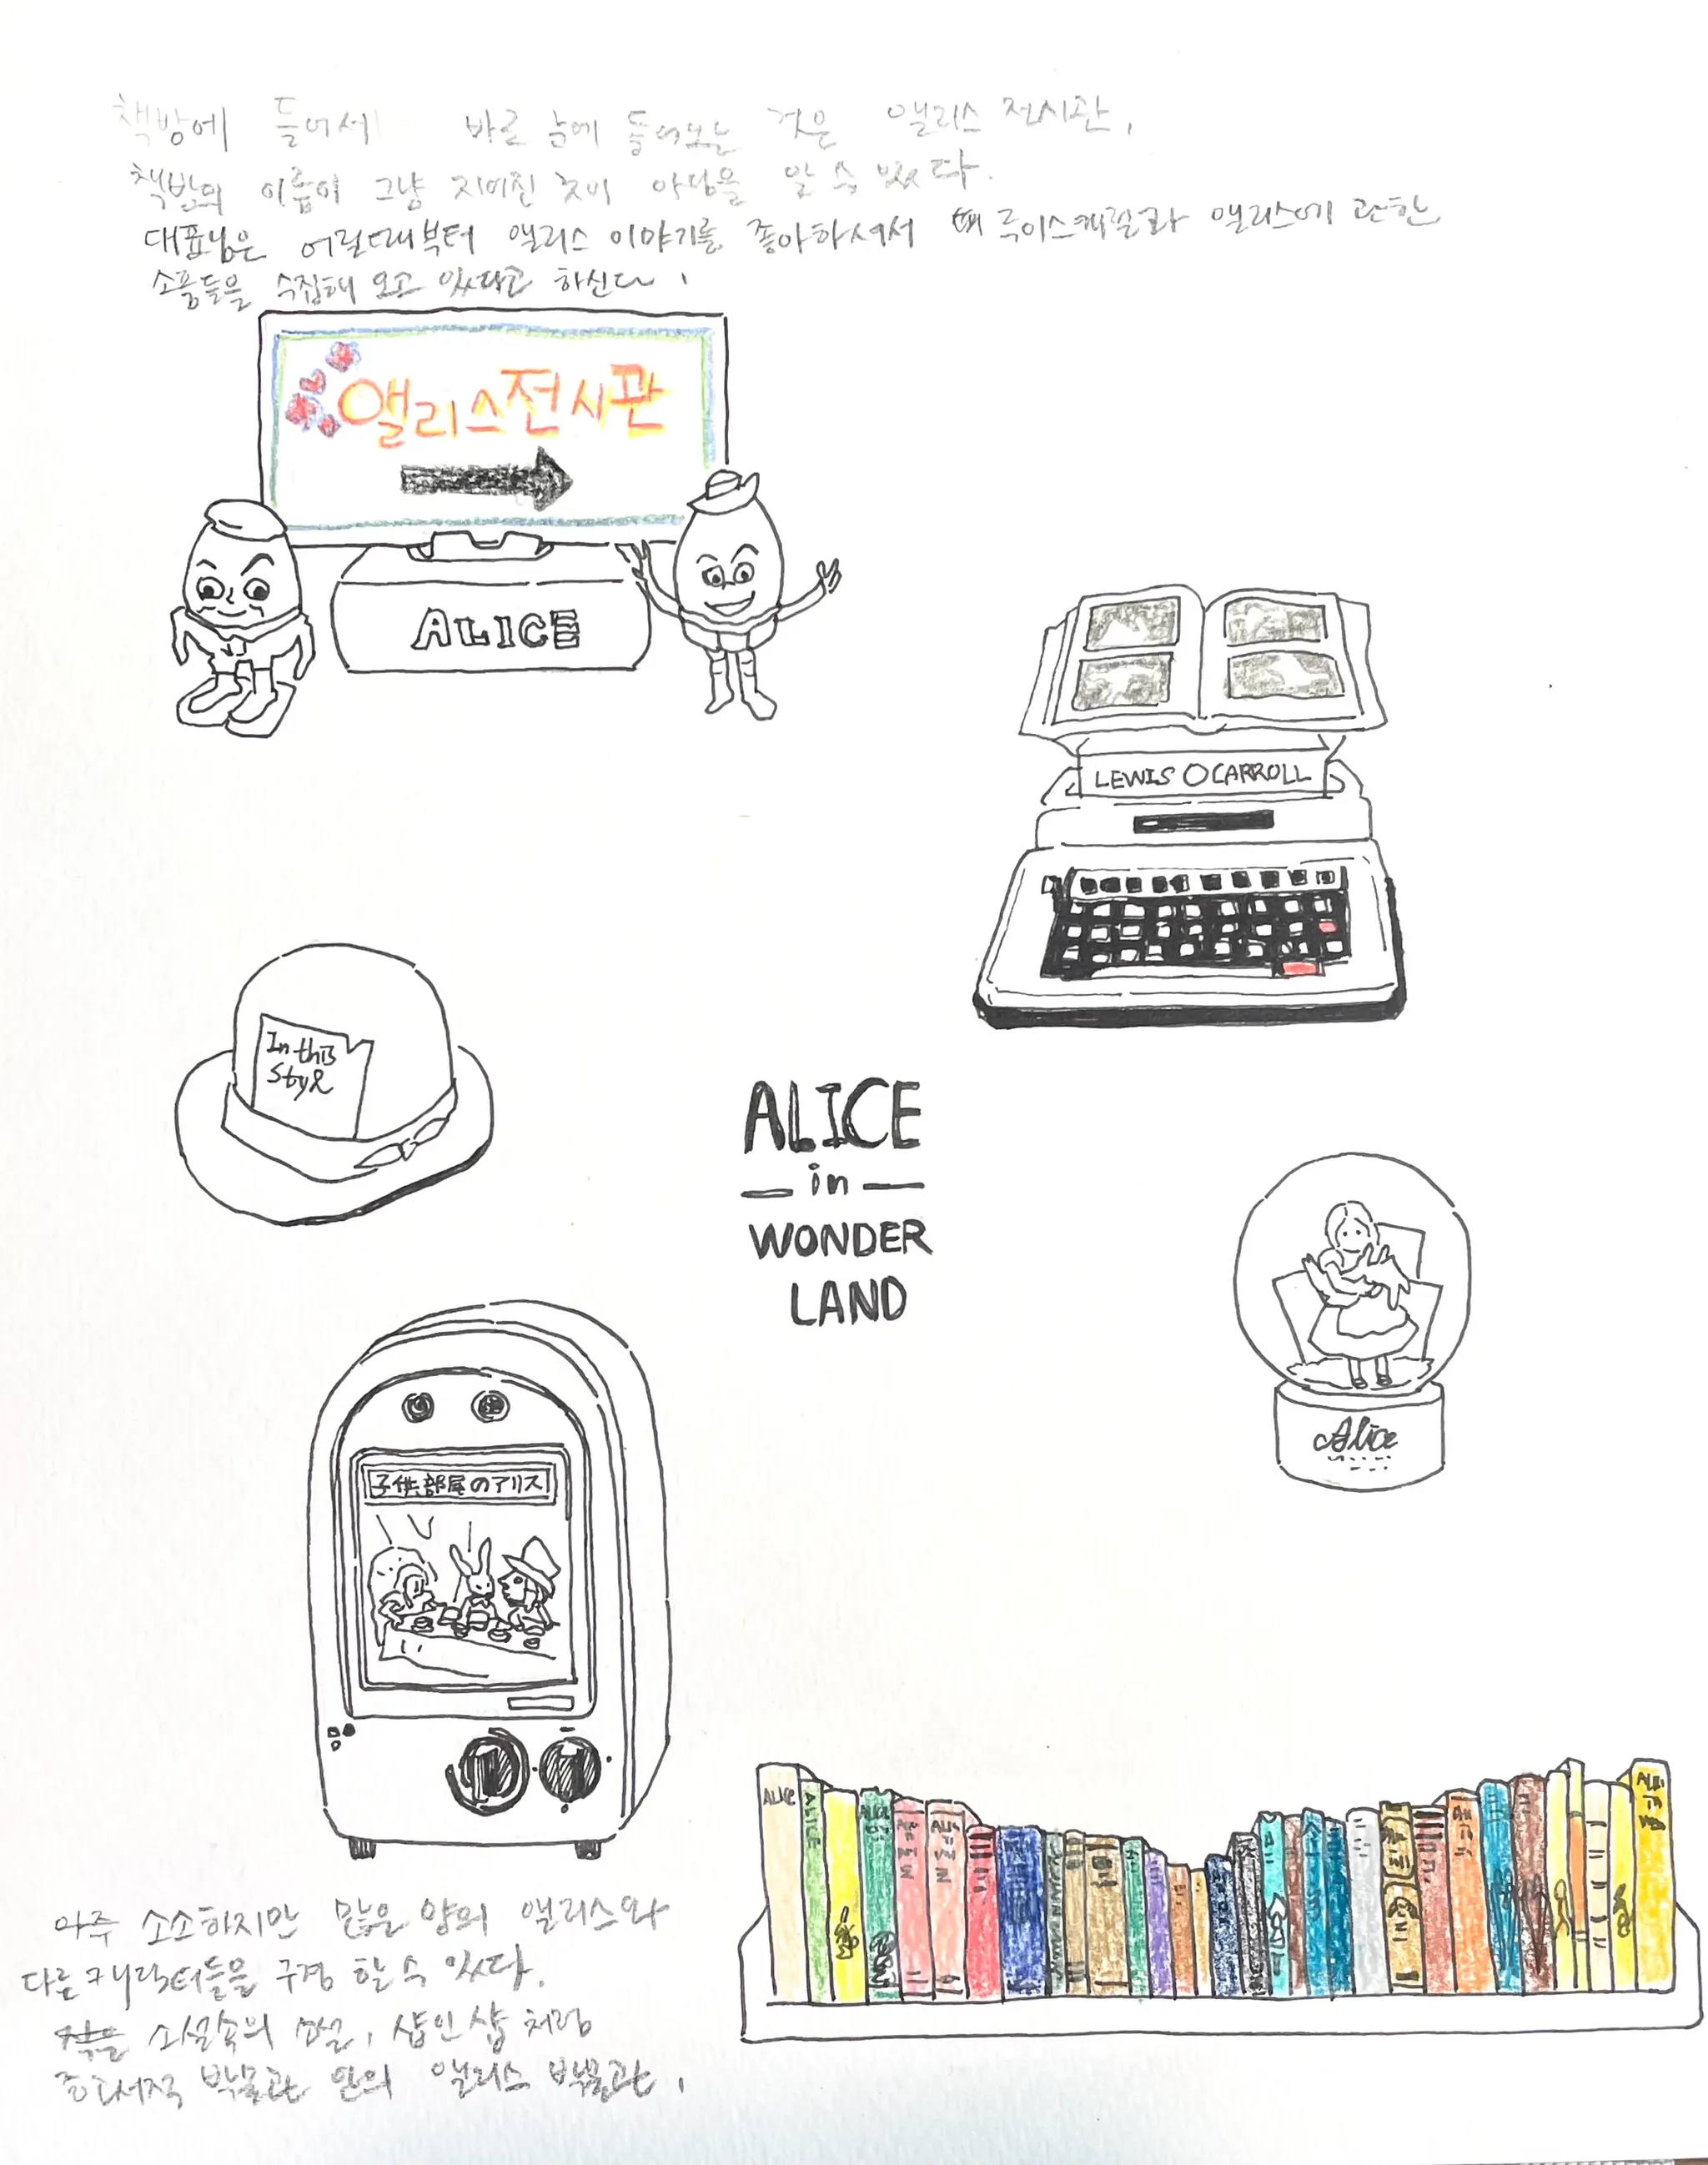 책방에 들어서 바로 눈에 들어오는 것은 앨리스 전시관.
책방의 이름이 그냥 지어진 것이 아님을 알 수 있다.
대표님은 어릴때부터 앨리스 이야기를 좋아하셔서 루이스캐럴과 앨리스에 관한
소품들을 수집해 오고 있다고 하신다.
앨리스전시관
ALICE
LEWIS CARROLL
In this
Style
ALICE
in
WONDER
LAND
Alice
子供部屋のアリス
ALICE
ALICE
아주 소소하지만 많은 양의 앨리스와
다른 캐릭터들을 구경 할 수 있다.
소설속의 소설, 샵인샵 처럼
박물관 안의 앨리스 박물관.